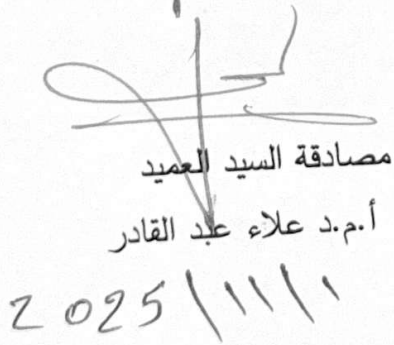 مصادقة السيد العميد
أ.م.د علاء عبد القادر
2025/11/1